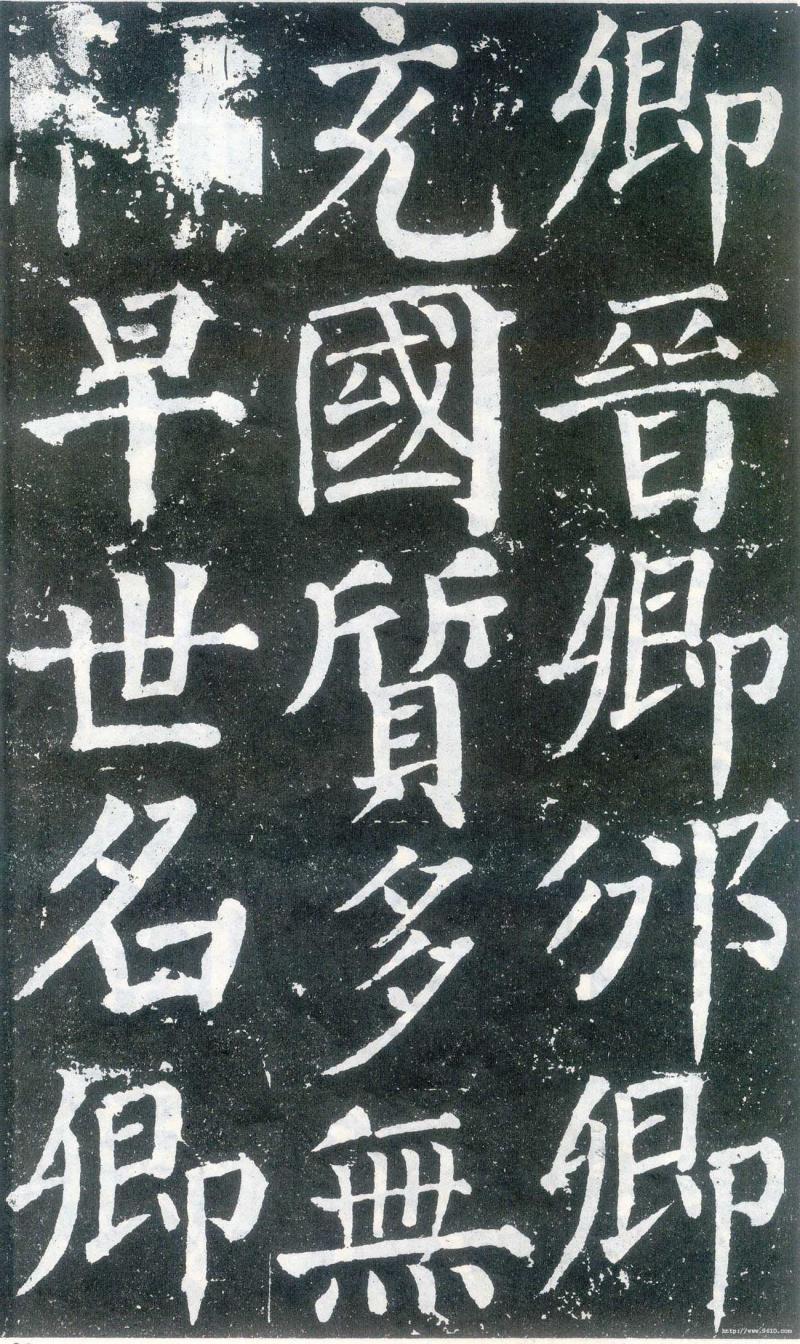 卿晉卿邠卿
充國質多無
早世名卿
http://www.9610.com